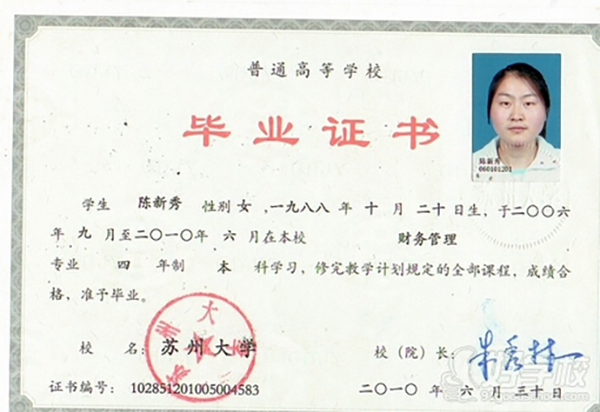 普通高等学校
毕业证书
陆新秀
060101201
学生 陈新秀 性别 女，一九八八 年 十 月 二十 日生，于二〇〇六
年 九 月至二〇一〇年 六 月在本校 财务管理
专业 四 年制 本 科学习，修完教学计划规定的全部课程，成绩合
格，准予毕业。
校 名：苏州大学
校（院）长：朱秀林
证书编号：102851201005004583
二〇一〇 年 六 月 三十 日